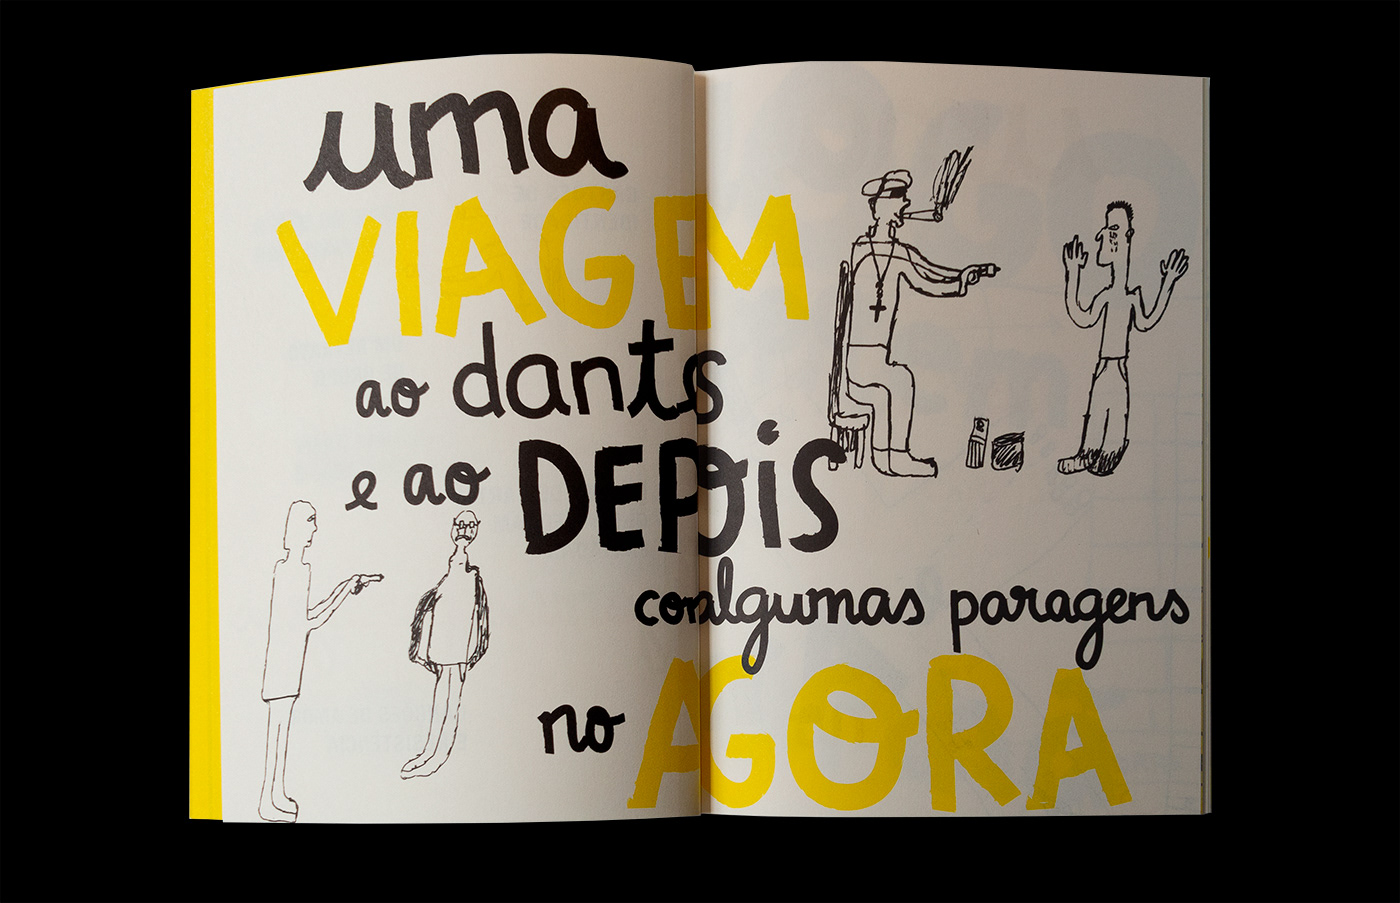 uma
VIAGEM
ao dants
e ao DEPOIS
com algumas paragens
no AGORA